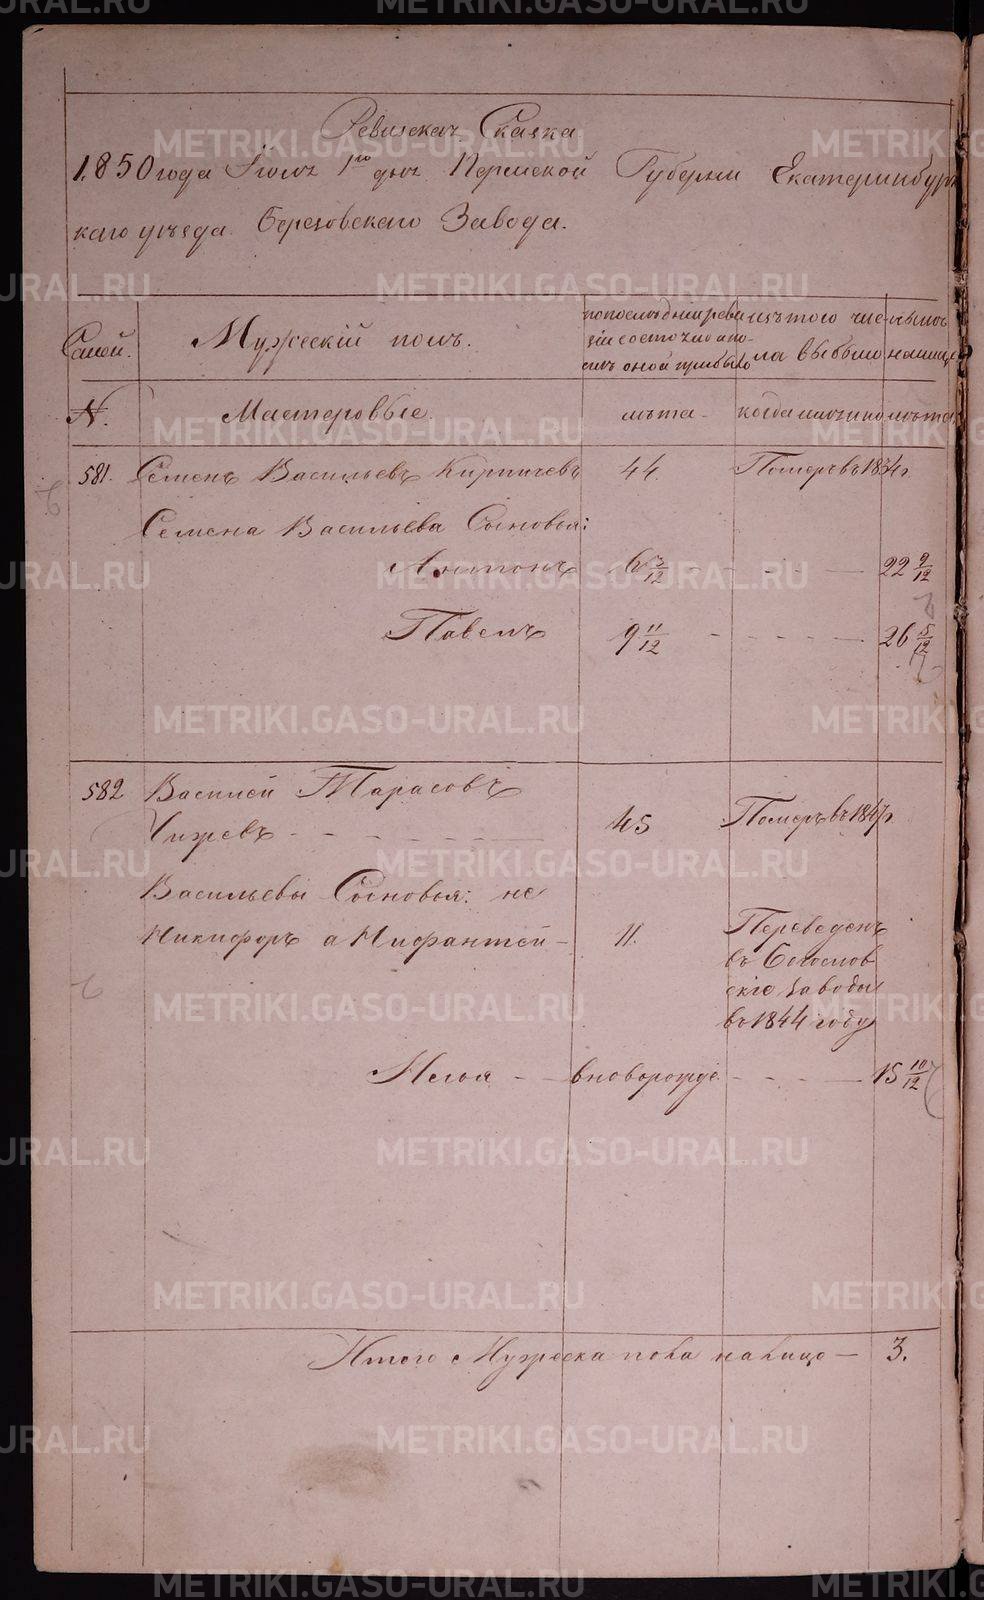 Ревизская Сказка
1850 года Іюля 1го дня Пермской Губерніи Екатеринбургс
каго уѣзда Березовскаго Завода.
Семей. Мужескій полъ. по послѣдней реви- изъ того чис- нынѣ
зіи состояло и по- ла выбыло на лицо
слѣ оной прибыло
№. Мастеровые. лѣта когда именно лѣта
581. Семенъ Васильевъ Кирпичевъ 44. Померъ въ 18 г.
Семена Васильева Сыновья:
Антонъ 6 - - - 22 9/12
Павелъ 9 11/12 - - - 26 5/12
582 Василей Тарасовъ
Чижевъ - - - 45 Померъ въ 1847 г.
Васильевы Сыновья: не
Никифоръ а Нифантей - 11. Переведенъ
въ Богослов
скіе заводы
въ 1844 году
Илья - вноворожде - - - 15 10/12
Итого Мужеска пола налицо - 3.
METRIKI.GASO-URAL.RU